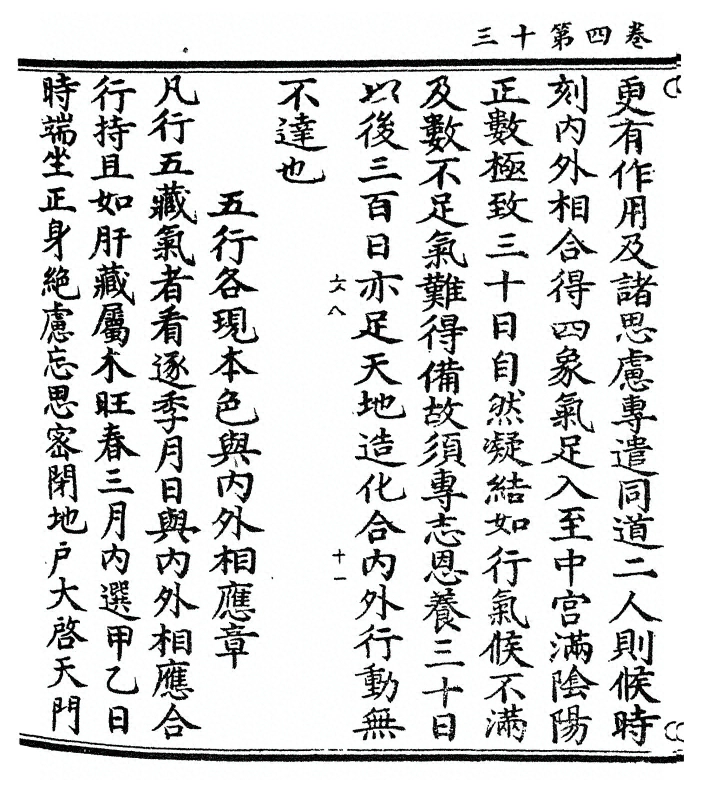 三十第四卷
更有作用及諸思慮專遣同道二人則候時
刻內外相合得四象氣足入至中宮滿陰陽
正數極致三十日自然凝結如行氣候不滿
及數不足氣難得備故須專志恩養三十日
以後三百日亦足天地造化合內外行動無
六八
十一
不達也
五行各現本色與內外相應章
凡行五藏氣者看逐季月日與內外相應合
行持且如肝藏屬木旺春三月內選甲乙日
時端坐正身絕慮忘思密閉地戶大啓天門